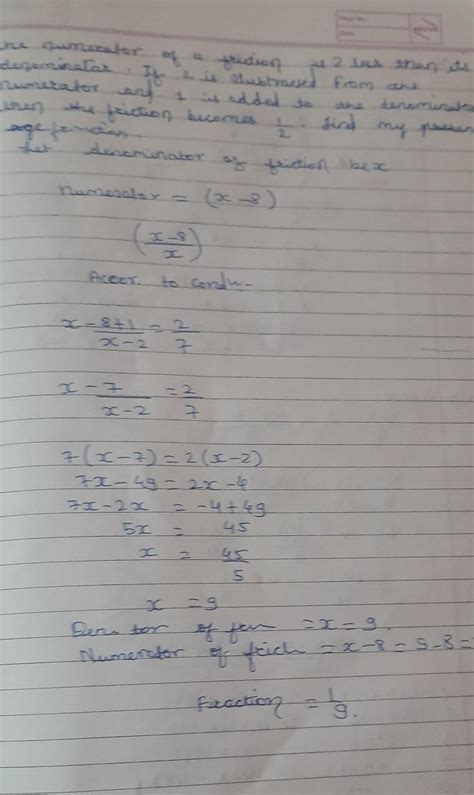 numerator of a friction is 2 less than its
denominator. If 2 is subtracted from the
numerator and 1 is added to the denominator
then the friction becomes 1/2. find my present
age fraction.
Let denominator of friction be x
Numerator = (x-8)
(x-8/x)
Accor. to condn.-
x-8+1/x-2 = 2/7
x-7/x-2 = 2/7
7(x-7)=2(x-2)
7x-49=2x-4
7x-2x = -4+49
5x = 45
x = 45/5
x = 9
tor of = x = 9.
Numerator of = x-8 = 9-8 =
Fraction = 1/9.